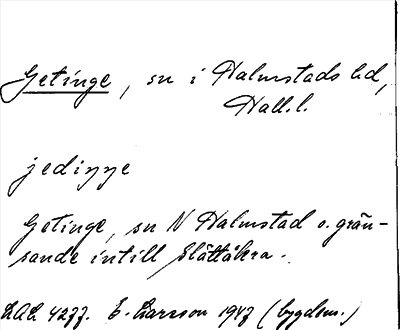 Getinge, sn i Halmstads hd,
Hall.l.
jediŋŋe
Getinge, sn N Halmstad o. grän-
sande intill Slättåkra.
E. Larsson 1947 (bygdem.)